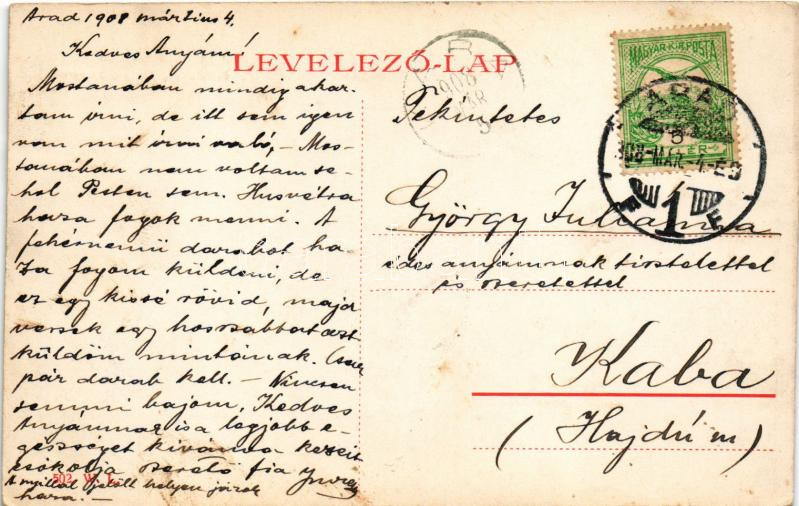 Arad 1908 március 4.
Kedves Anyám!
LEVELEZŐ-LAP
Mostanában mindig akar-
tam írni, de itt sem igen
van mit írni való, – Mos-
tanában nem voltam se-
hol Pesten sem. Husvétra
haza fogok menni. A
fehérnemü darabot ha-
za fogom küldeni, de
ez egy kissé rövid, majd
veszek egy hosszabbat azt
küldöm mintának. Csak
pár darab kell. – Nincsen
semmi bajom, Kedves
Anyámnak is a legjobb e-
gészséget kivánva kezeit
csókolja szerető fia
A nyillal jelölt helyen járok
haza. –
502. W. L.
MAGYAR KIR. POSTA
ARAD
908 MÁR
1
Tekintetes
György Julianna
édes anyámnak tisztelettel
és szeretettel
Kaba
(Hajdú m)